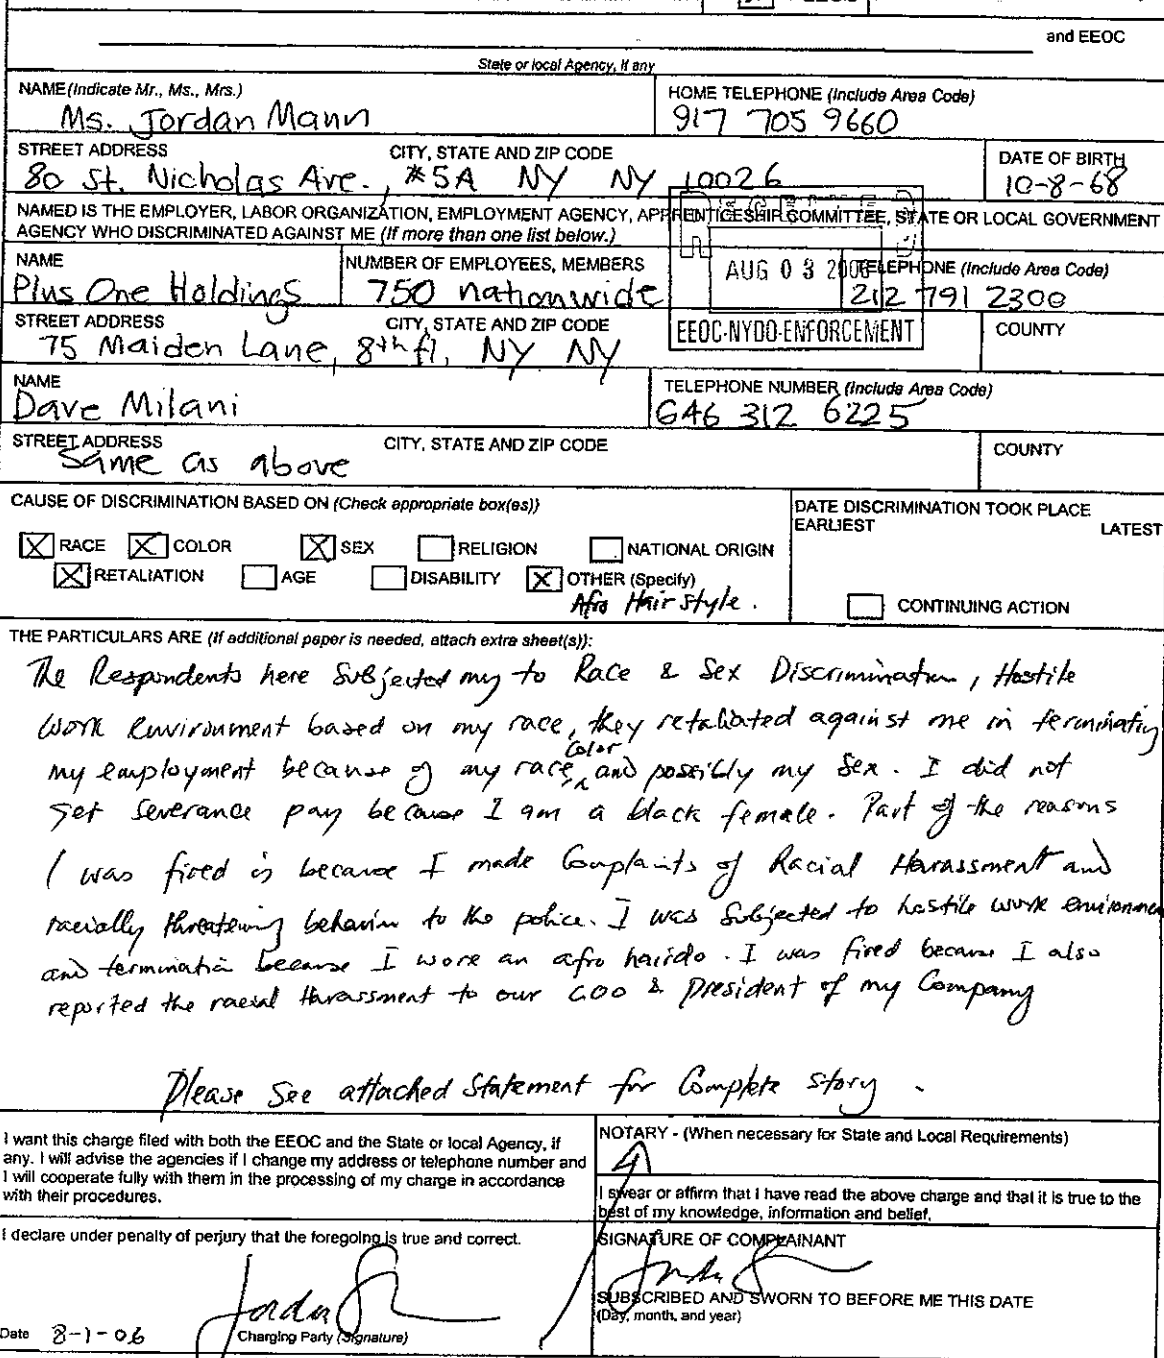 and EEOC
State or local Agency, if any
NAME (Indicate Mr., Ms., Mrs.) HOME TELEPHONE (Include Area Code)
Ms. Jordan Mann 917 705 9660
STREET ADDRESS CITY, STATE AND ZIP CODE DATE OF BIRTH
80 St. Nicholas Ave., #5A NY NY 10026 10-8-68
NAMED IS THE EMPLOYER, LABOR ORGANIZATION, EMPLOYMENT AGENCY, APPRENTICESHIP COMMITTEE, STATE OR LOCAL GOVERNMENT
AGENCY WHO DISCRIMINATED AGAINST ME (If more than one list below.)
NAME NUMBER OF EMPLOYEES, MEMBERS AUG 03 2006 TELEPHONE (Include Area Code)
Plus One Holdings 750 nationwide 212 791 2300
STREET ADDRESS CITY, STATE AND ZIP CODE EEOC-NYDO-ENFORCEMENT COUNTY
75 Maiden Lane, 8th fl, NY NY
NAME TELEPHONE NUMBER (Include Area Code)
Dave Milani 646 312 6225
STREET ADDRESS CITY, STATE AND ZIP CODE COUNTY
Same as above
CAUSE OF DISCRIMINATION BASED ON (Check appropriate box(es)) DATE DISCRIMINATION TOOK PLACE
EARLIEST LATEST
X RACE X COLOR X SEX RELIGION NATIONAL ORIGIN
X RETALIATION AGE DISABILITY X OTHER (Specify)
Afro Hair style.
CONTINUING ACTION
THE PARTICULARS ARE (If additional paper is needed, attach extra sheet(s)):
The Respondents here Subjected my to Race & Sex Discrimination, Hostile
work environment based on my race, they retaliated against me in terminating
my employment because of my race, color and possibly my Sex. I did not
get severance pay because I am a black female. Part of the reasons
I was fired is because I made Complaints of Racial Harassment and
racially threatening behavior to the police. I was Subjected to hostile work environmen
and termination because I wore an afro hairdo. I was fired because I also
reported the racial Harassment to our COO & President of my Company
Please See attached Statement for Complete story.
I want this charge filed with both the EEOC and the State or local Agency, if
any. I will advise the agencies if I change my address or telephone number and
I will cooperate fully with them in the processing of my charge in accordance
with their procedures.
NOTARY - (When necessary for State and Local Requirements)
I swear or affirm that I have read the above charge and that it is true to the
best of my knowledge, information and belief.
I declare under penalty of perjury that the foregoing is true and correct.
SIGNATURE OF COMPLAINANT
SUBSCRIBED AND SWORN TO BEFORE ME THIS DATE
(Day, month, and year)
Date 8-1-06 Charging Party (Signature)